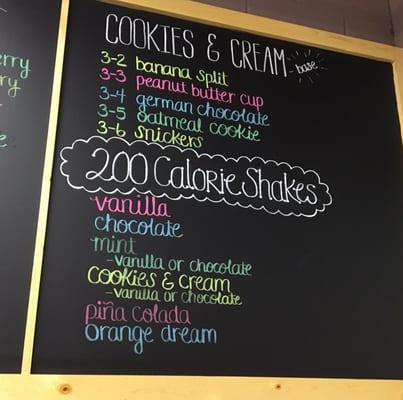 COOKIES & CREAM base
3-2 banana split
3-3 peanut butter cup
3-4 german chocolate
3-5 oatmeal cookie
3-6 snickers
200 Calorie Shakes
vanilla
chocolate
mint
-vanilla or chocolate
cookies & cream
-vanilla or chocolate
piña colada
orange dream